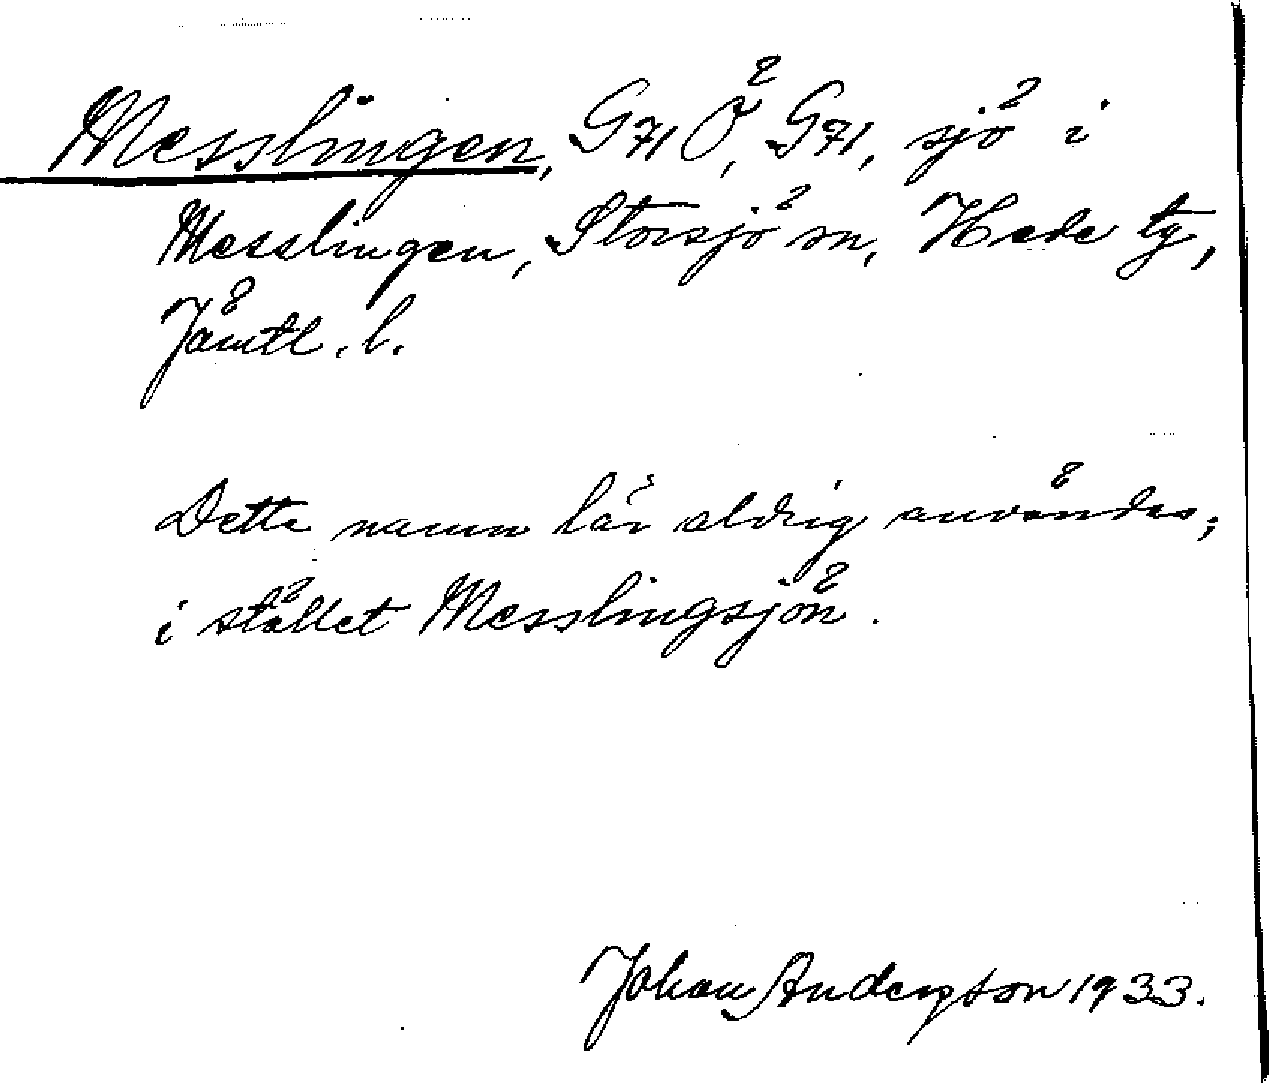 Messlingen, G71Ö, G71, sjö i
Messlingen, Storsjö sn, Hede tg,
Jämtl. l.
Dette namn lär aldrig användas;
i stället Messlingsjön.
Johan Anderson 1933.